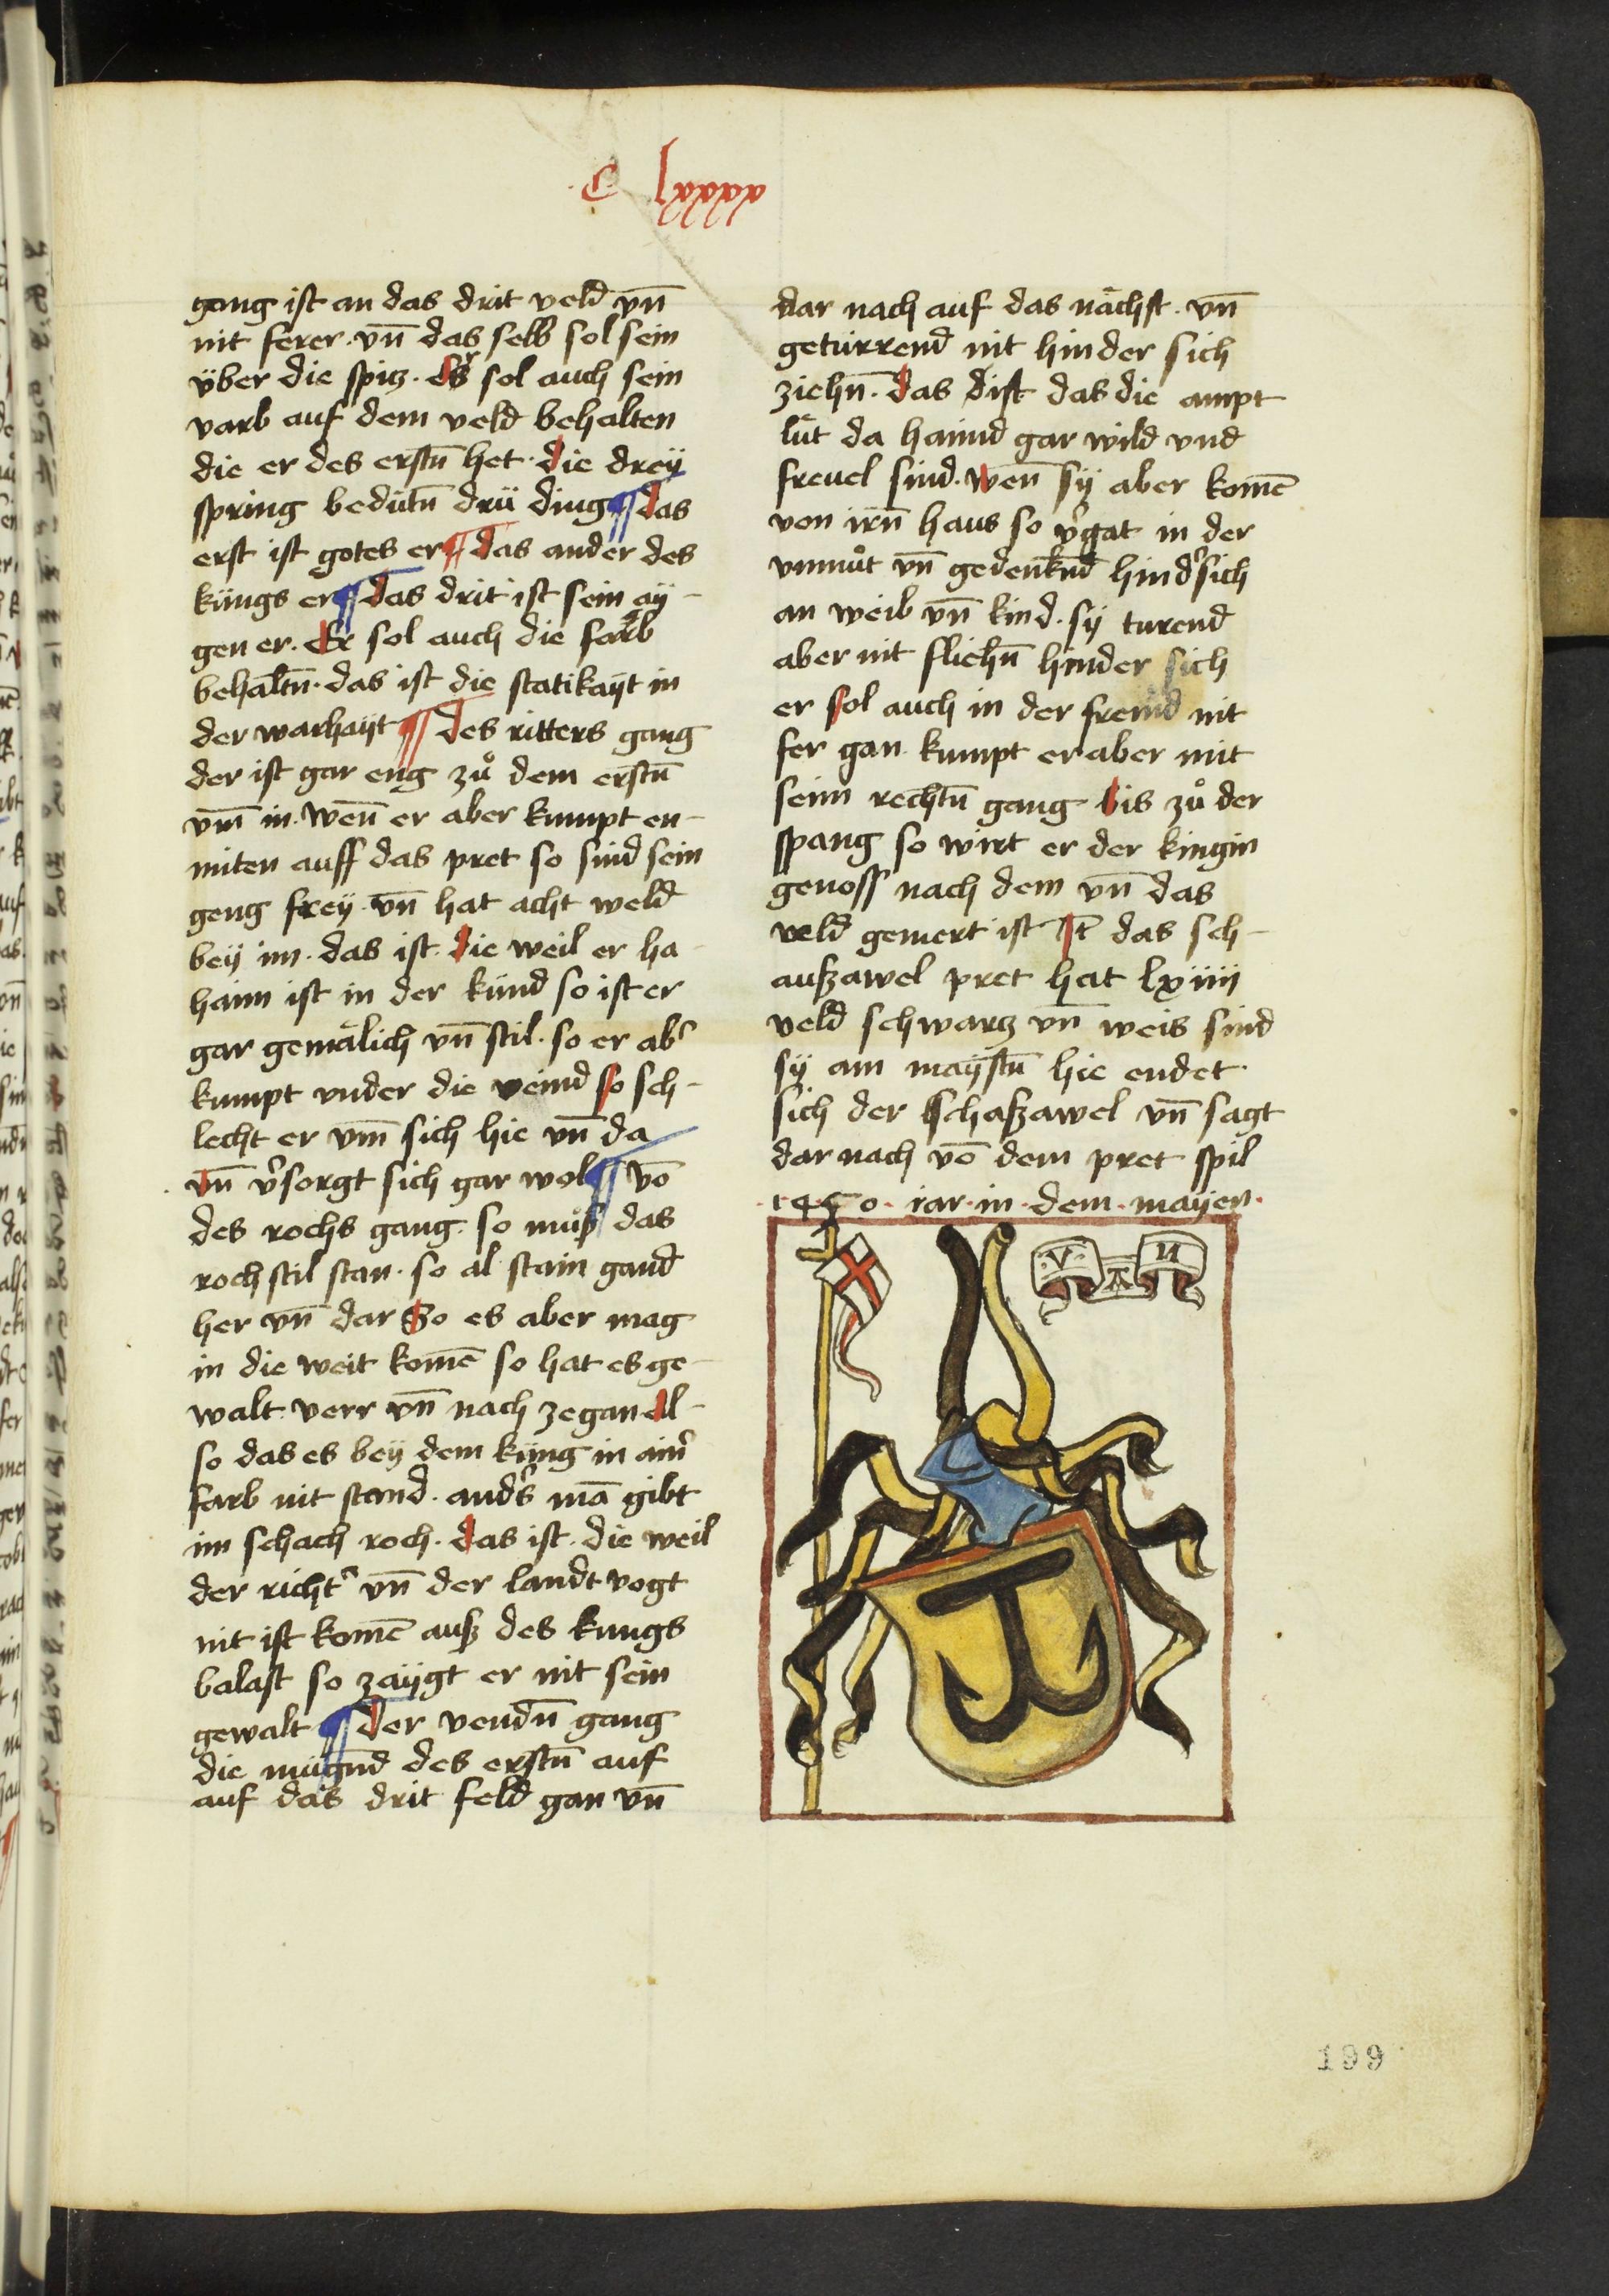 C lxxxx
gang ist an das drit veld vn̄
nit ferer. vn̄ das selb sol sein
v̈ber die spitz. Er sol auch sein
varb auf dem veld behalten
die er des erstn̄ het. die dreÿ
spring bedütn̄ drü ding ¶ das
erst ist gotes er ¶ das ander des
küngs er ¶ das drit ist sein aÿ-
gen er. Er sol auch die farb
behaltn̄. das ist die statikaÿt in
der warhaÿt ¶ des ritters gang
der ist gar eng zů dem erstn̄
vm̄ in. wen̄ er aber kumpt en-
miten auff das pret so sind sein
geng freÿ. vn̄ hat acht weld
beÿ im. das ist. die weil er ha-
haim ist in der künd so ist er
gar gemålich vn̄ stil. so er ab̉
kumpt vnder die veind so sch-
lecht er vm̄ sich hie vn̄ da
vn̄ v̉sorgt sich gar wol ¶ vō
des rochs gang. so můß das
roch stil stan. so al stain gand
her vn̄ dar So es aber mag
in die weit komē so hat es ge-
walt verr vn̄ nach zegan al-
so das es beÿ dem küng in ain̉
farb nit stand. and̉s mā gibt
im schach roch. das ist. die weil
der richt̉ vn̄ der landt vogt
nit ist komē auß des kungs
balast so zaÿgt er nit sein
gewalt ¶ der vendn̄ gang
die mügn̄d des erstn̄ auf
auf das drit feld gan vn̄
dar nach auf das nåchst. vn̄
getürrend nit hinder sich
ziehn̄. das dist das die ampt
lüt da haimd gar wild vnd
freuel sind. wen̄ sÿ aber komē
von irn̄ haus so v̉gat in der
vnmůt vn̄ gedenkn̄d hind̉ sich
an weib vn̄ kind. sÿ turend
aber nit fliehn̄ hinder sich
er sol auch in der fremd nit
fer gan. kumpt er aber mit
seim rechtn̄ gang bis zů der
spang so wirt er der kingin
genoss nach dem vn̄ das
veld gemert ist It̄ das sch-
aufzawel pret hat lxiiij
veld schwarz vn̄ weis sind
sÿ am maÿstn̄ hie endet
sich der schafzawel vn̄ sagt
dar nach vō dem pret spil
.1450. iar. in. dem. maÿen.
.V. A N
199